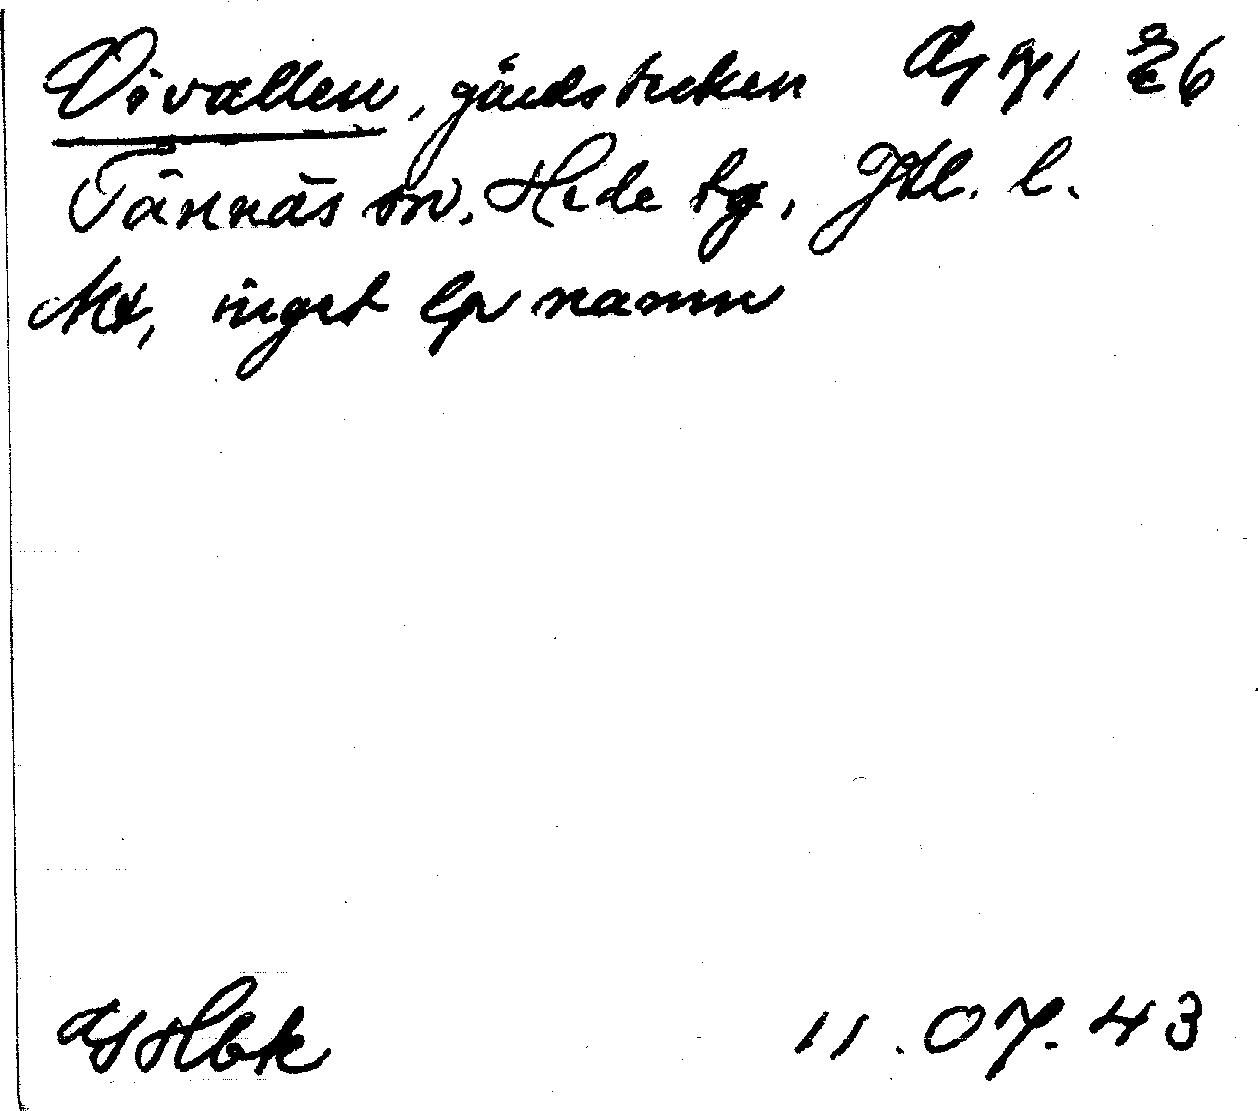 Vivallen, gårdstecken
Tännäs sn. Hede tg, Jtl. l.
Mt, inget lp namn
11.07.43